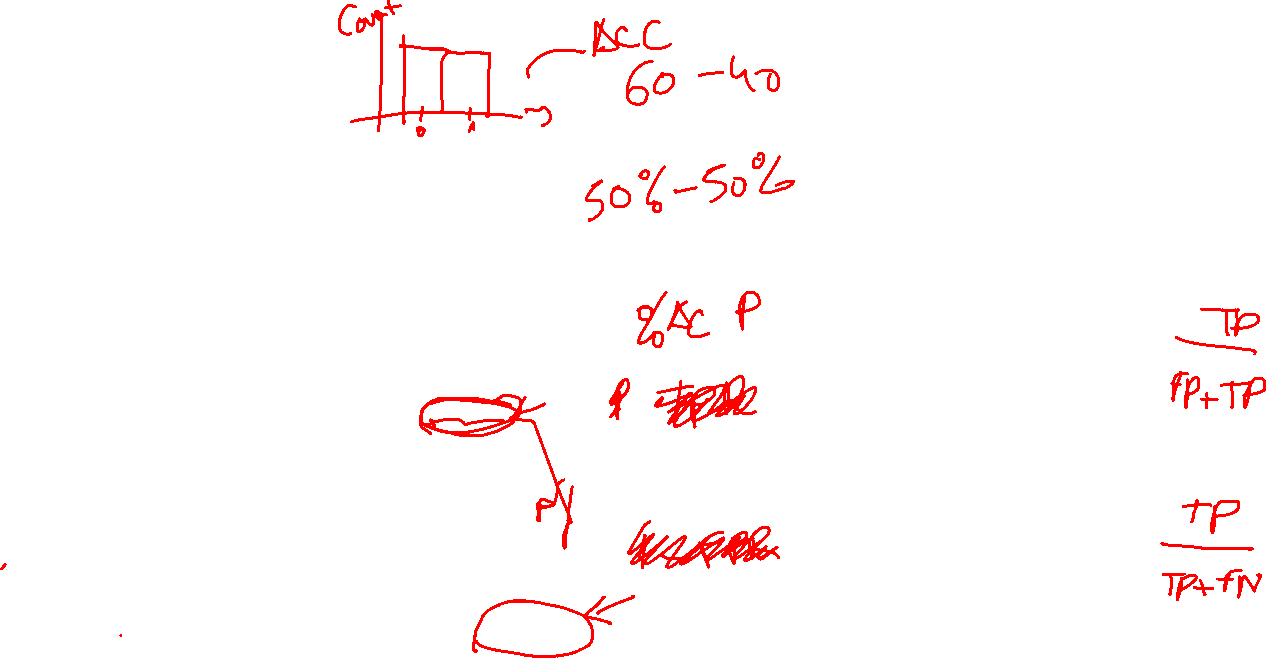 Count
ACC
60 - 40
0 1
50% - 50%
%AC P
TP
FP+TP
P
TP
TP+FN